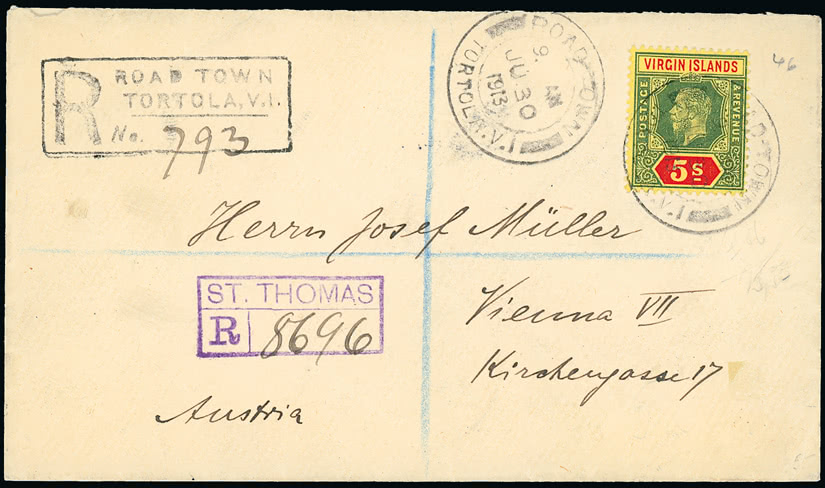 R ROAD TOWN
TORTOLA, V.I.
No. 793
ROAD TOWN
9 AM
JU 30
1913
TORTOLA. V.I.
VIRGIN ISLANDS
POSTAGE
& REVENUE
5s
46
Herrn Josef Müller
ST. THOMAS
R 8696
Vienna VII
Kirchengasse 17
Austria